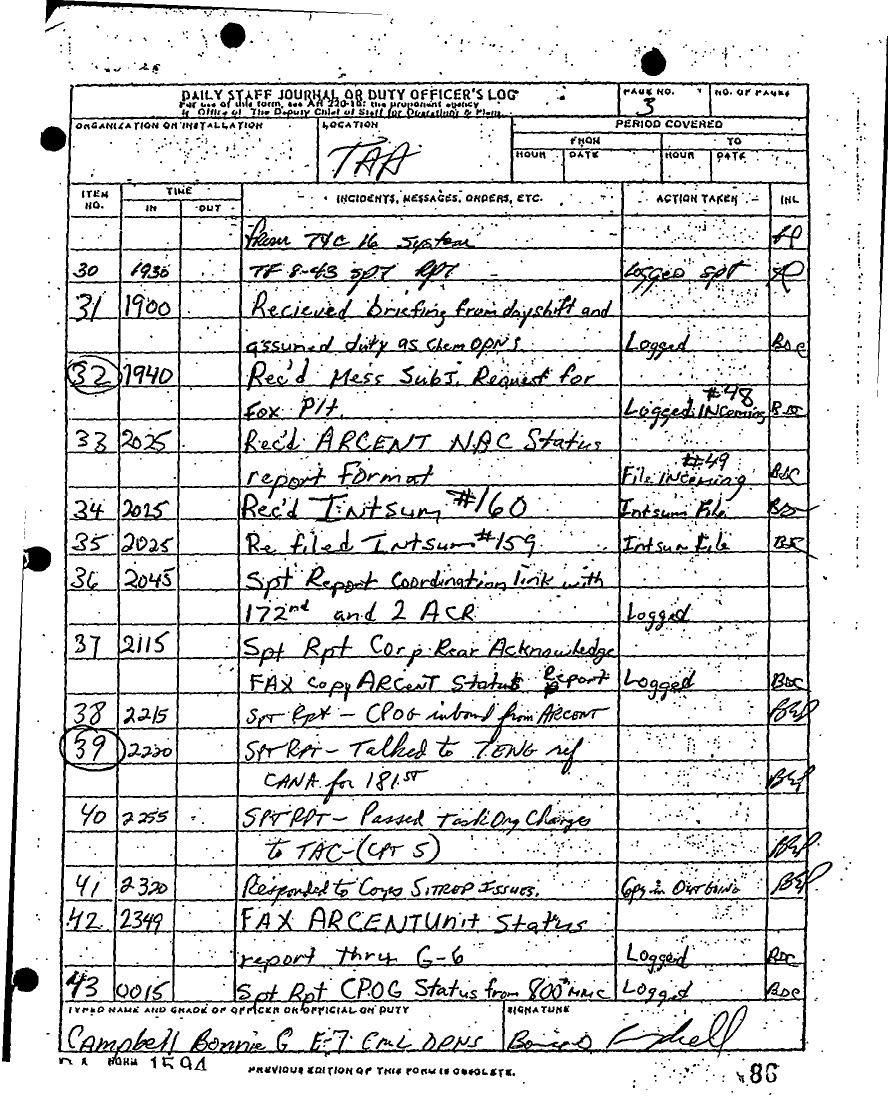 DAILY STAFF JOURNAL OR DUTY OFFICER'S LOG
For use of this form, see AR 220-15; the proponent agency
is Office of The Deputy Chief of Staff for Operations & Plans.
PAGE NO.
3
NO. OF PAGES
ORGANIZATION OR INSTALLATION
LOCATION
TAA
PERIOD COVERED
FROM
TO
HOUR
DATE
HOUR
DATE
ITEM NO.
TIME
IN
OUT
INCIDENTS, MESSAGES, ORDERS, ETC.
ACTION TAKEN
INL
From TYC 16 System
30 1930 TF 8-43 SPT RPT Logged SPT
31 1900 Recieved briefing from dayshift and
assumed duty as Chem OPN's. Logged BDC
32 1940 Rec'd Mess Subj. Request for
Fox Plt. Logged INcoming #48
33 2025 Rec'd ARCENT NAC Status
report Format File INcoming #49 BDC
34 2025 Rec'd Intsum #160 Intsum File
35 2025 Re filed Intsum #159 Intsum File
36 2045 Spt Report Coordination link with
172nd and 2 ACR Logged
37 2115 Spt Rpt Corp Rear Acknowledge
FAX copy ARCENT Status Report Logged BDC
38 2215 Spt Rpt - CPOG inbound from ARCENT
39 2220 Spt Rpt - Talked to ref
CANA for 181ST
40 2255 SPT RPT - Passed Task Org Changes
to TAC - (CPT S)
41 2320 Responded to Corps SITREP Issues. Cpy in OUTGOING
42 2349 FAX ARCENT Unit Status
report thru G-6 Logged BDC
43 0015 Spt Rpt CPOG Status from 800th MMC Logged BDC
TYPED NAME AND GRADE OF OFFICER OR OFFICIAL ON DUTY
SIGNATURE
Campbell Bonnie G E-7 CML OPNS
FORM 1594
PREVIOUS EDITION OF THIS FORM IS OBSOLETE.
86